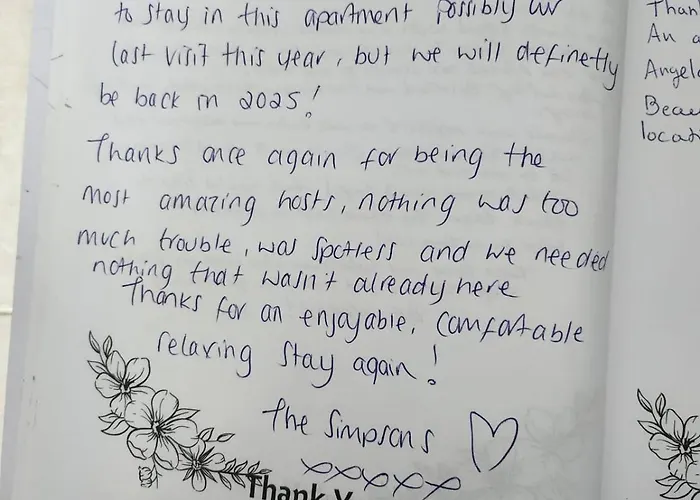 to stay in this apartment possibly our
last visit this year, but we will definetly
be back in 2025!
Thanks once again for being the
most amazing hosts, nothing was too
much trouble, was spotless and we needed
nothing that wasn't already here
Thanks for an enjoyable, comfortable
relaxing stay again!
The Simpsons ♡
xxxxx
Thank
Than
An a
Angel
Beau
locati